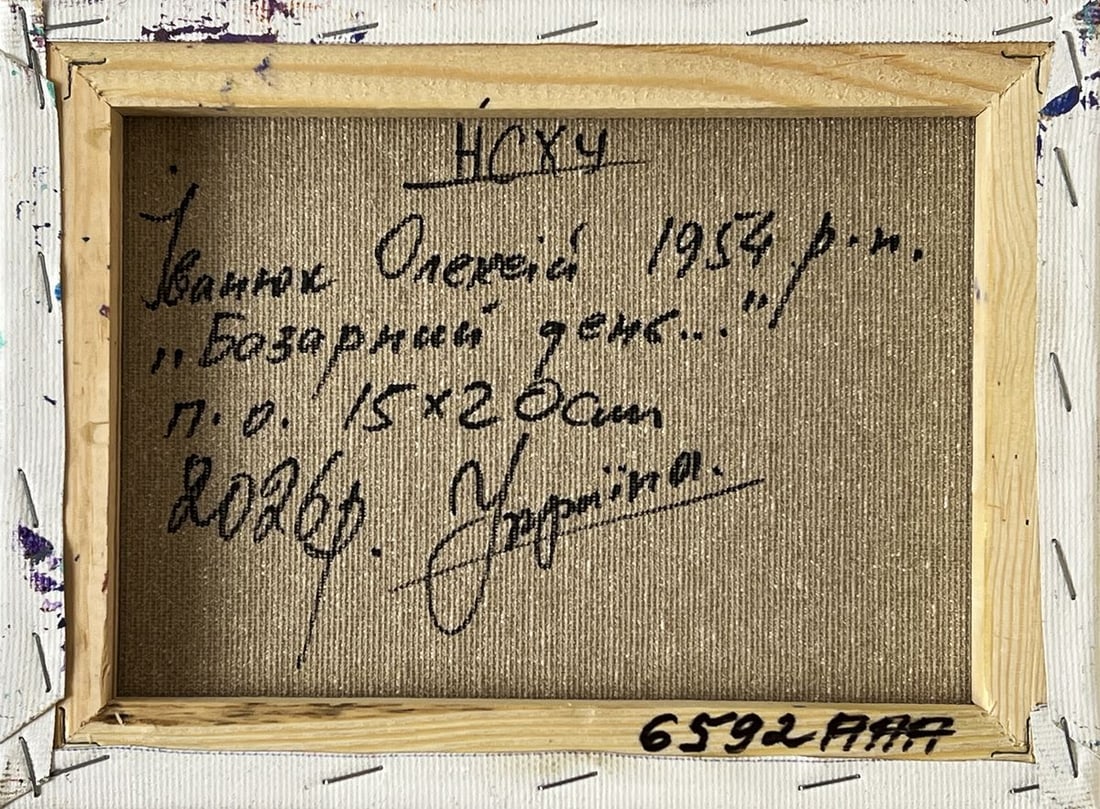 НСХУ
Іванюк Олексій 1954 р.н.
„Базарний день..."
п.о. 15×20см
2026р. Україна.
6592ААА